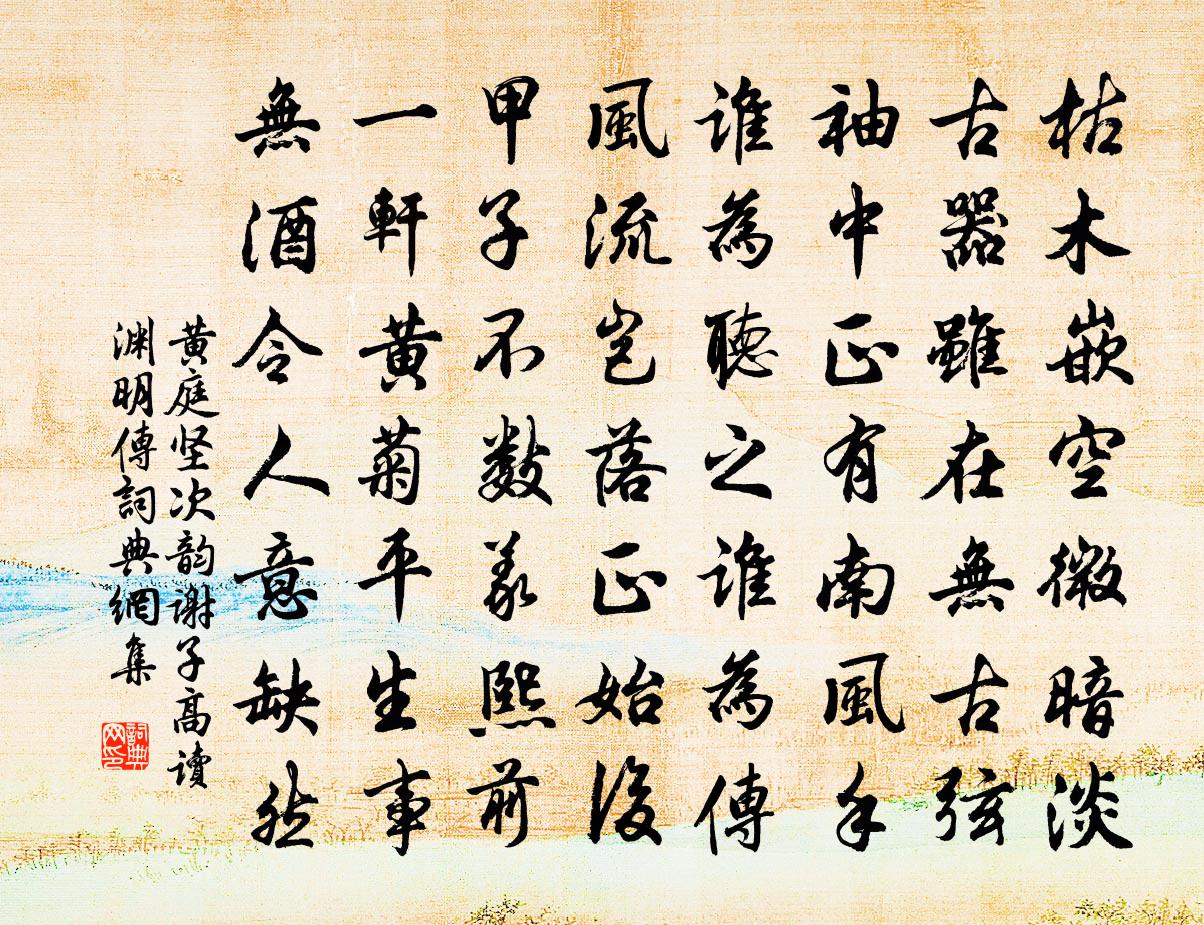 枯木嵌空微暗淡
古器雖在無古弦
袖中正有南風手
誰為聽之誰為傳
風流豈落正始後
甲子不數羲熙前
一軒黃菊平生事
無酒令人意缺然
黄庭坚次韵謝子高讀
渊明傳詞典網集
詞典网印